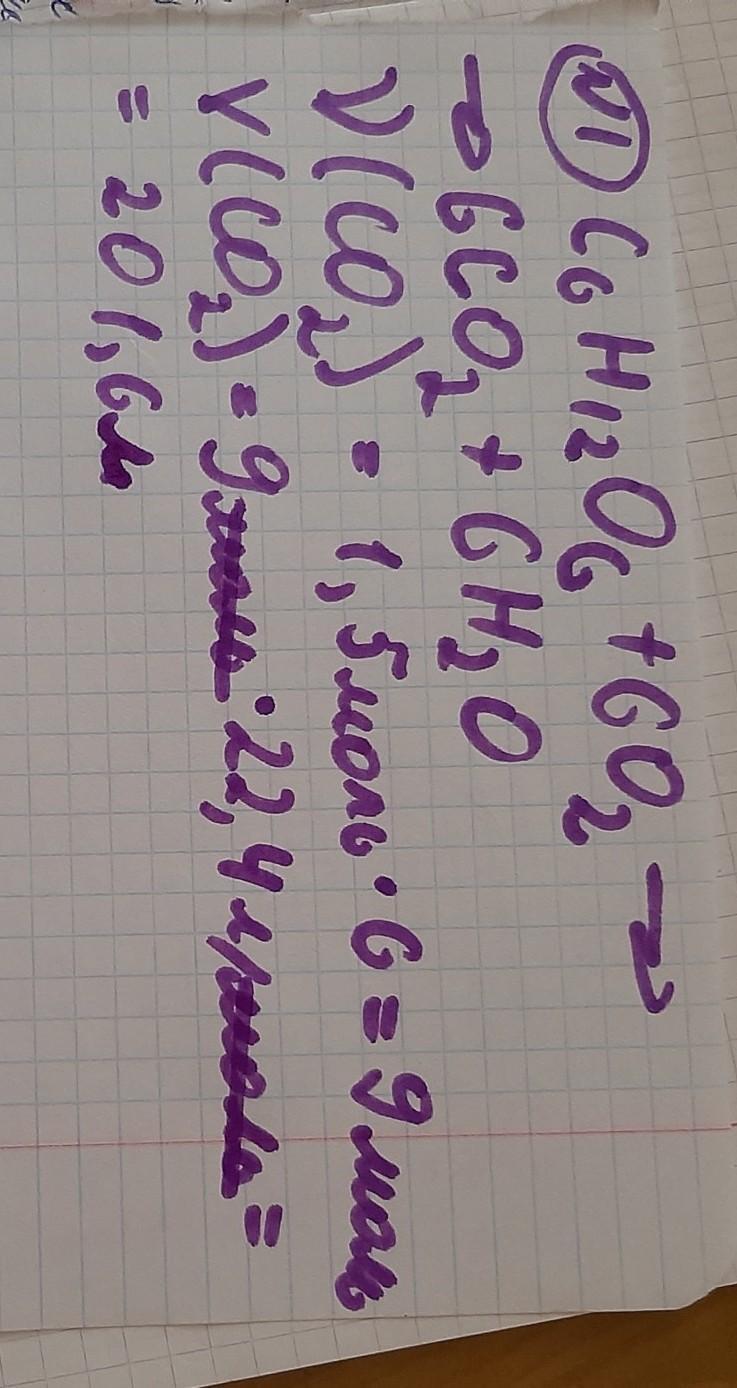 №1 C6H12O6 + 6O2 →
→ 6CO2 + 6H2O
ν(CO2) = 1,5моль·6 = 9моль
V(CO2) = 9моль·22,4л/моль =
= 201,6л